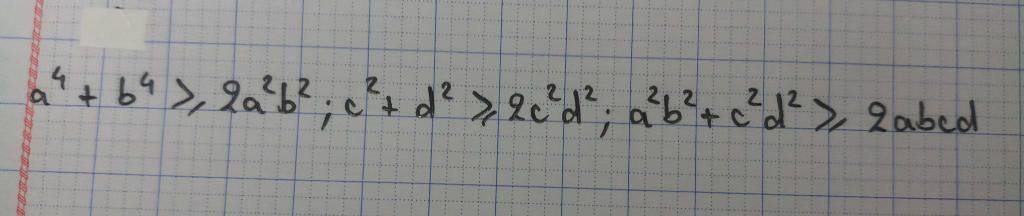 a⁴ + b⁴ ⩾ 2a²b² ; c² + d² ⩾ 2c²d² ; a²b² + c²d² ⩾ 2abcd